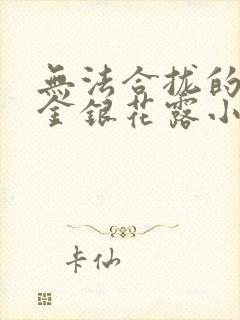 無法合拢的
金銀花露小
卡仙